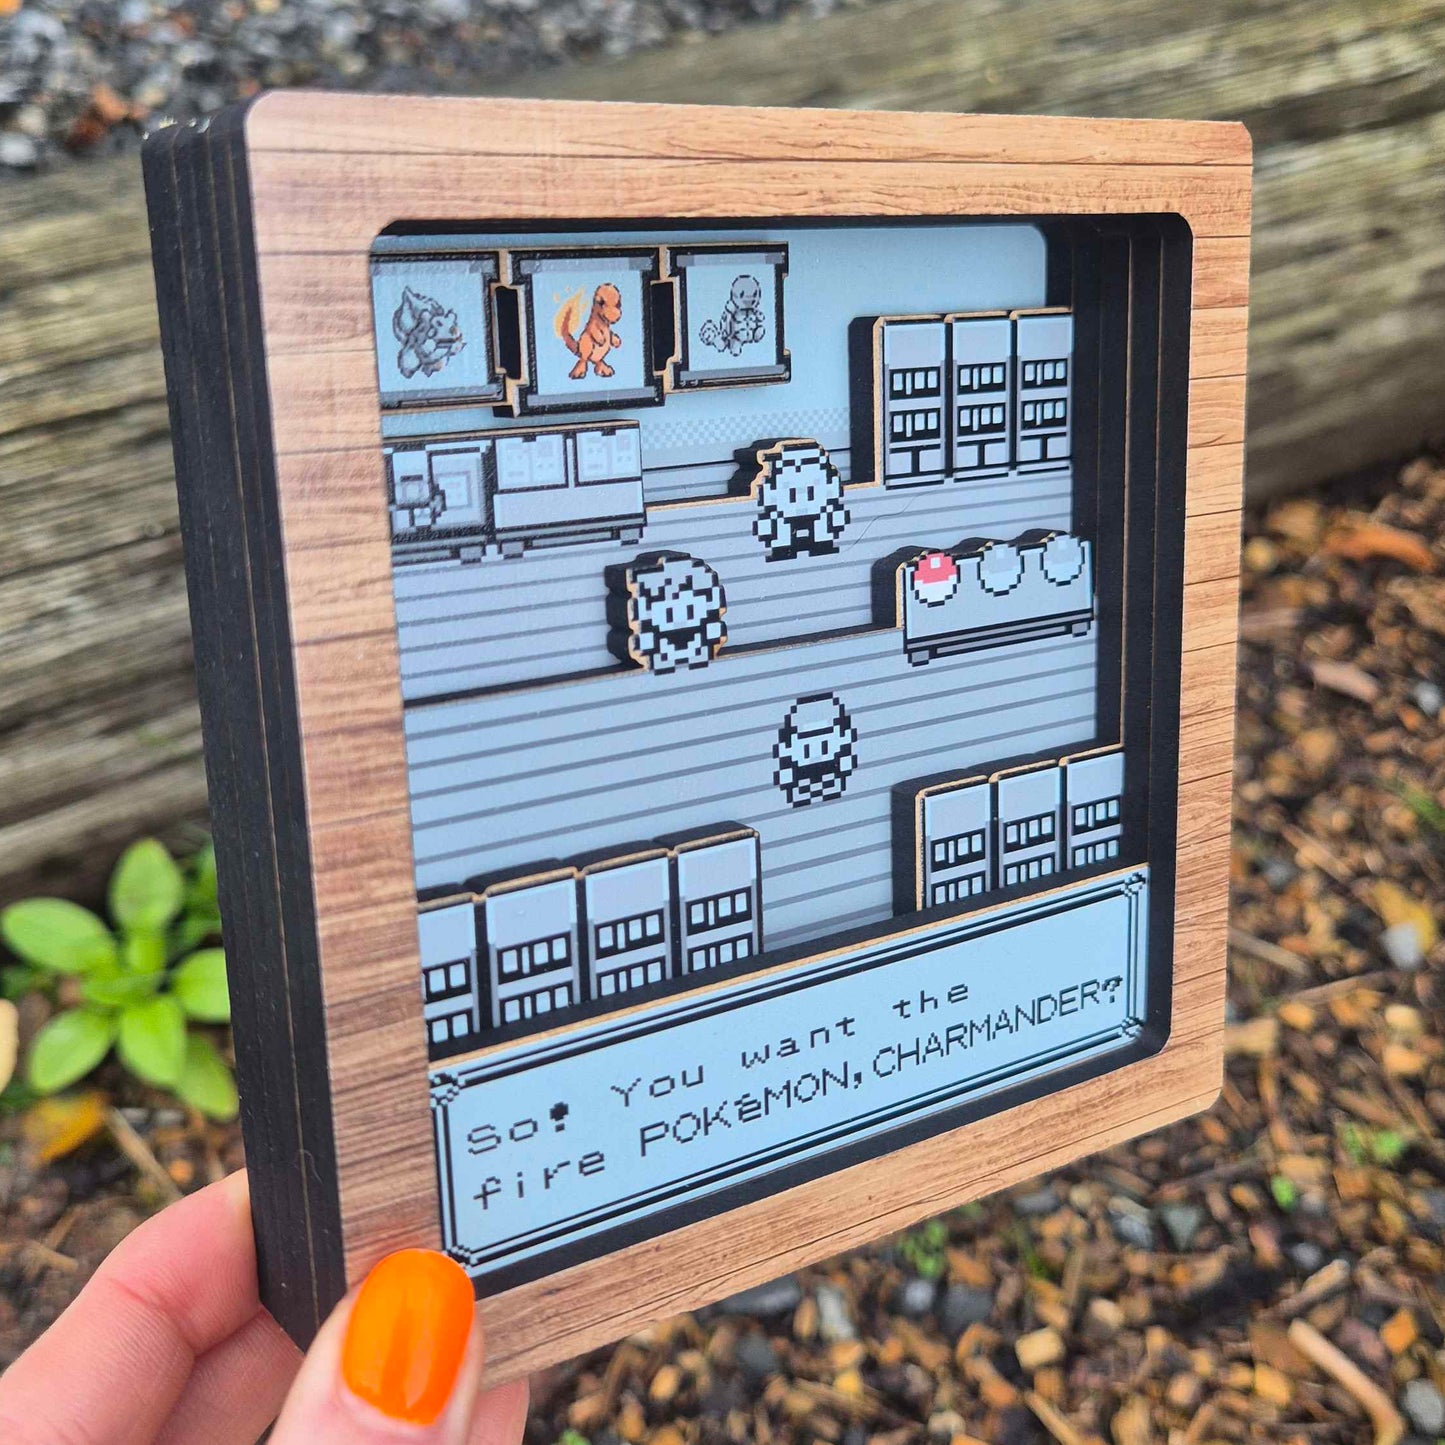 So! You want the
fire POKéMON, CHARMANDER?